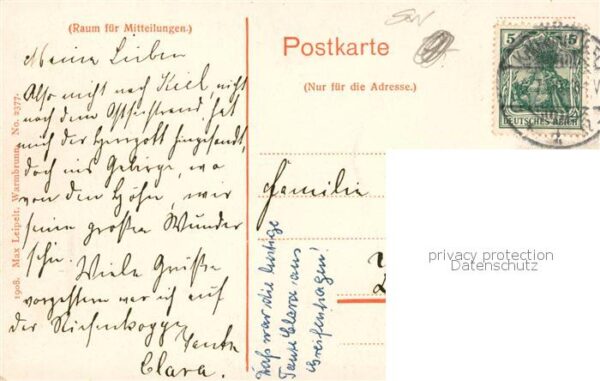 (Raum für Mitteilungen.)
Meine Lieben
Also nicht nach Kiel, nicht
nach dem Ostseestrand hat
mich der Herrgott hingesandt,
doch ins Gebirge, wo
von den Höhn, wir
seine großen Wunder
sehn.
Viele Grüße
vorgestern war ich auf
der Riesenkoppe
Tante
Clara.
1908. Max Leipelt, Warmbrunn. No. 2377.
Postkarte
(Nur für die Adresse.)
Familie
Das war die lustige
Tante Clara aus
Greifenhagen!
5 5
DEUTSCHES REICH
privacy protection
Datenschutz